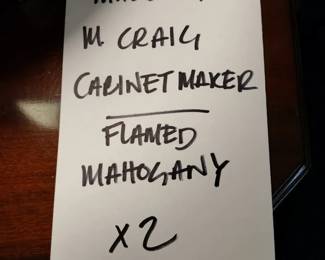 M. CRAIG
CABINET MAKER
FLAMED
MAHOGANY
X 2